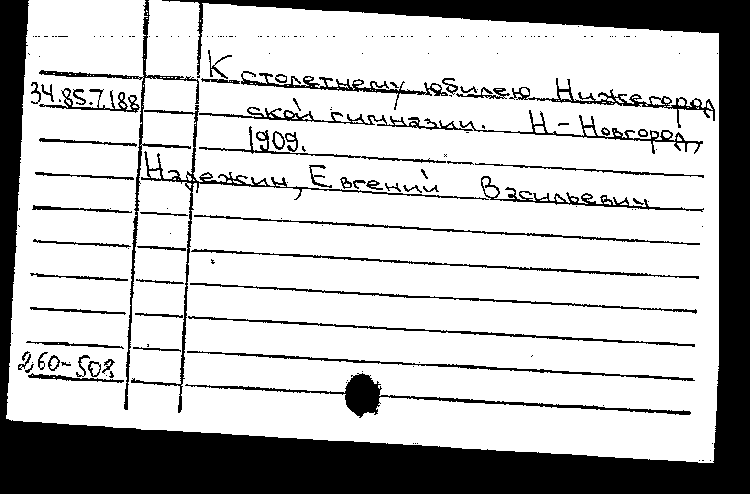 К столетнему юбилею Нижегород
34.85.7.188
ской гимназии. Н.-Новгород,
1909.
Надежин, Евгений Васильевич
260-508